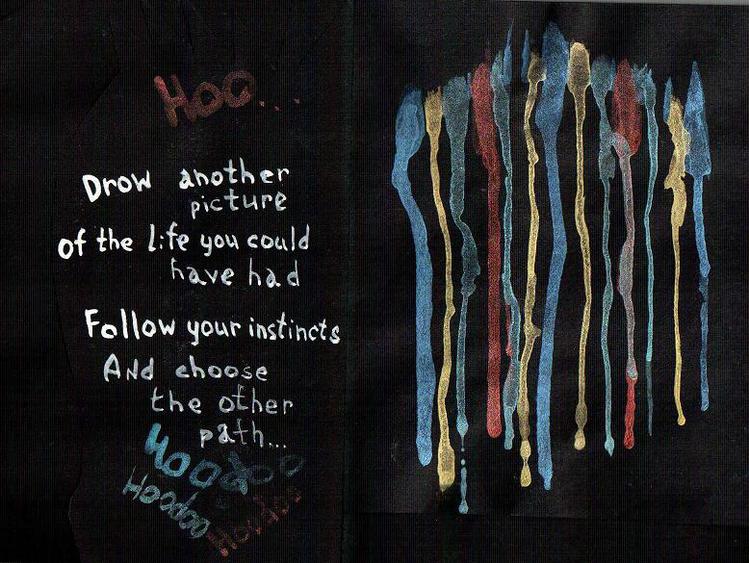 Hoo...
Drow another
picture
of the life you could
have had
Follow your instincts
And choose
the other
path...
Hoodoo
Hoodoo
Hoodoo